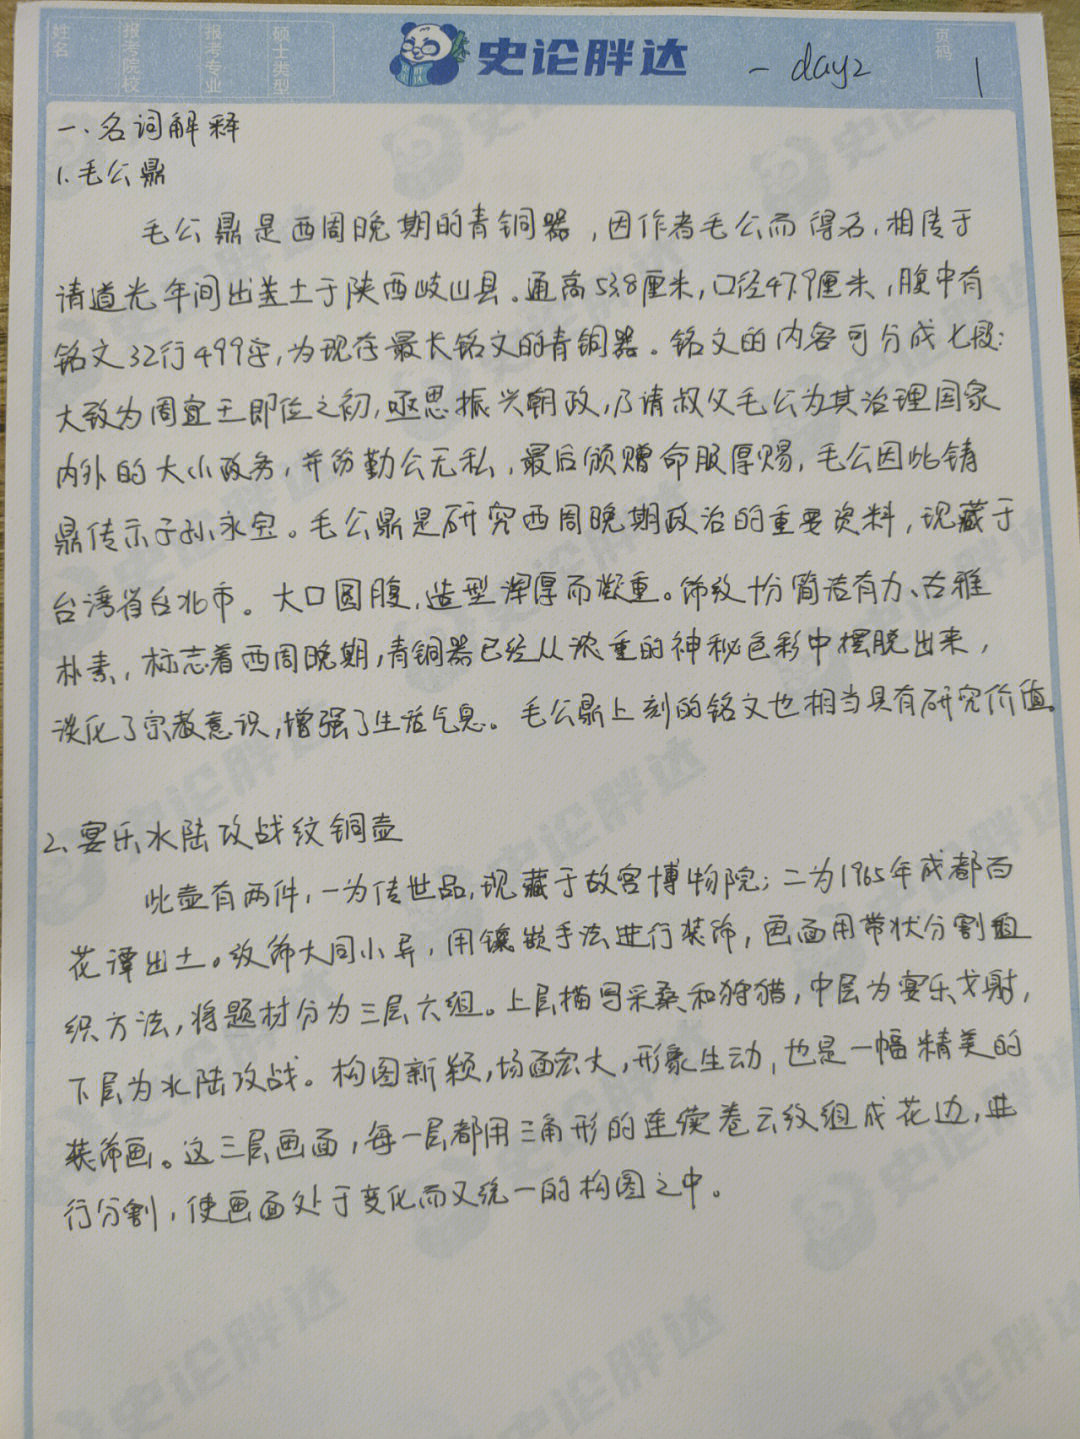 姓名
报考院校
报考专业
硕士类型
史论胖达
页码
一 day2
1
一.名词解释
1.毛公鼎
毛公鼎是西周晚期的青铜器，因作者毛公而得名，相传于
清道光年间出土于陕西岐山县。通高53.8厘米，口径47.9厘米，腹中有
铭文32行499字，为现存最长铭文的青铜器。铭文的内容可分成七段：
大致为周宣王即位之初，亟思振兴朝政，乃请叔父毛公为其治理国家
内外的大小政务，并饬勤公无私，最后颁赠命服厚赐，毛公因此铸
鼎传示子孙永宝。毛公鼎是研究西周晚期政治的重要资料，现藏于
台湾省台北市。大口圆腹，造型浑厚而凝重。饰纹十分简洁有力、古雅
朴素，标志着西周晚期，青铜器已经从浓重的神秘色彩中摆脱出来，
淡化了宗教意识，增强了生活气息。毛公鼎上刻的铭文也相当具有研究价值。
2、宴乐水陆攻战纹铜壶
此壶有两件，一为传世品，现藏于故宫博物院；二为1965年成都百
花谭出土。纹饰大同小异，用镶嵌手法进行装饰，画面用带状分割组
织方法，将题材分为三层六组。上层描写采桑和狩猎，中层为宴乐弋射，
下层为水陆攻战。构图新颖，场面宏大，形象生动，也是一幅精美的
装饰画。这三层画面，每一层都用三角形的连续卷云纹组成花边，进
行分割，使画面处于变化而又统一的构图之中。